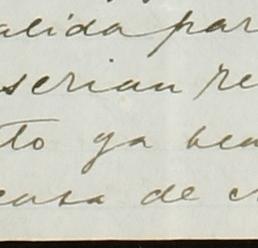 alida par
serian re
to ya ven
casa de